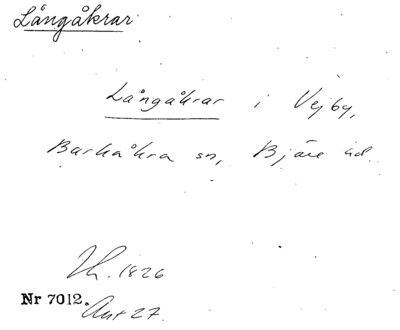 Långåkrar
Långåkrar i Vejby,
Barkåkra sn, Bjäre hd.
Lh. 1826
Nr 7012. Akt 27.